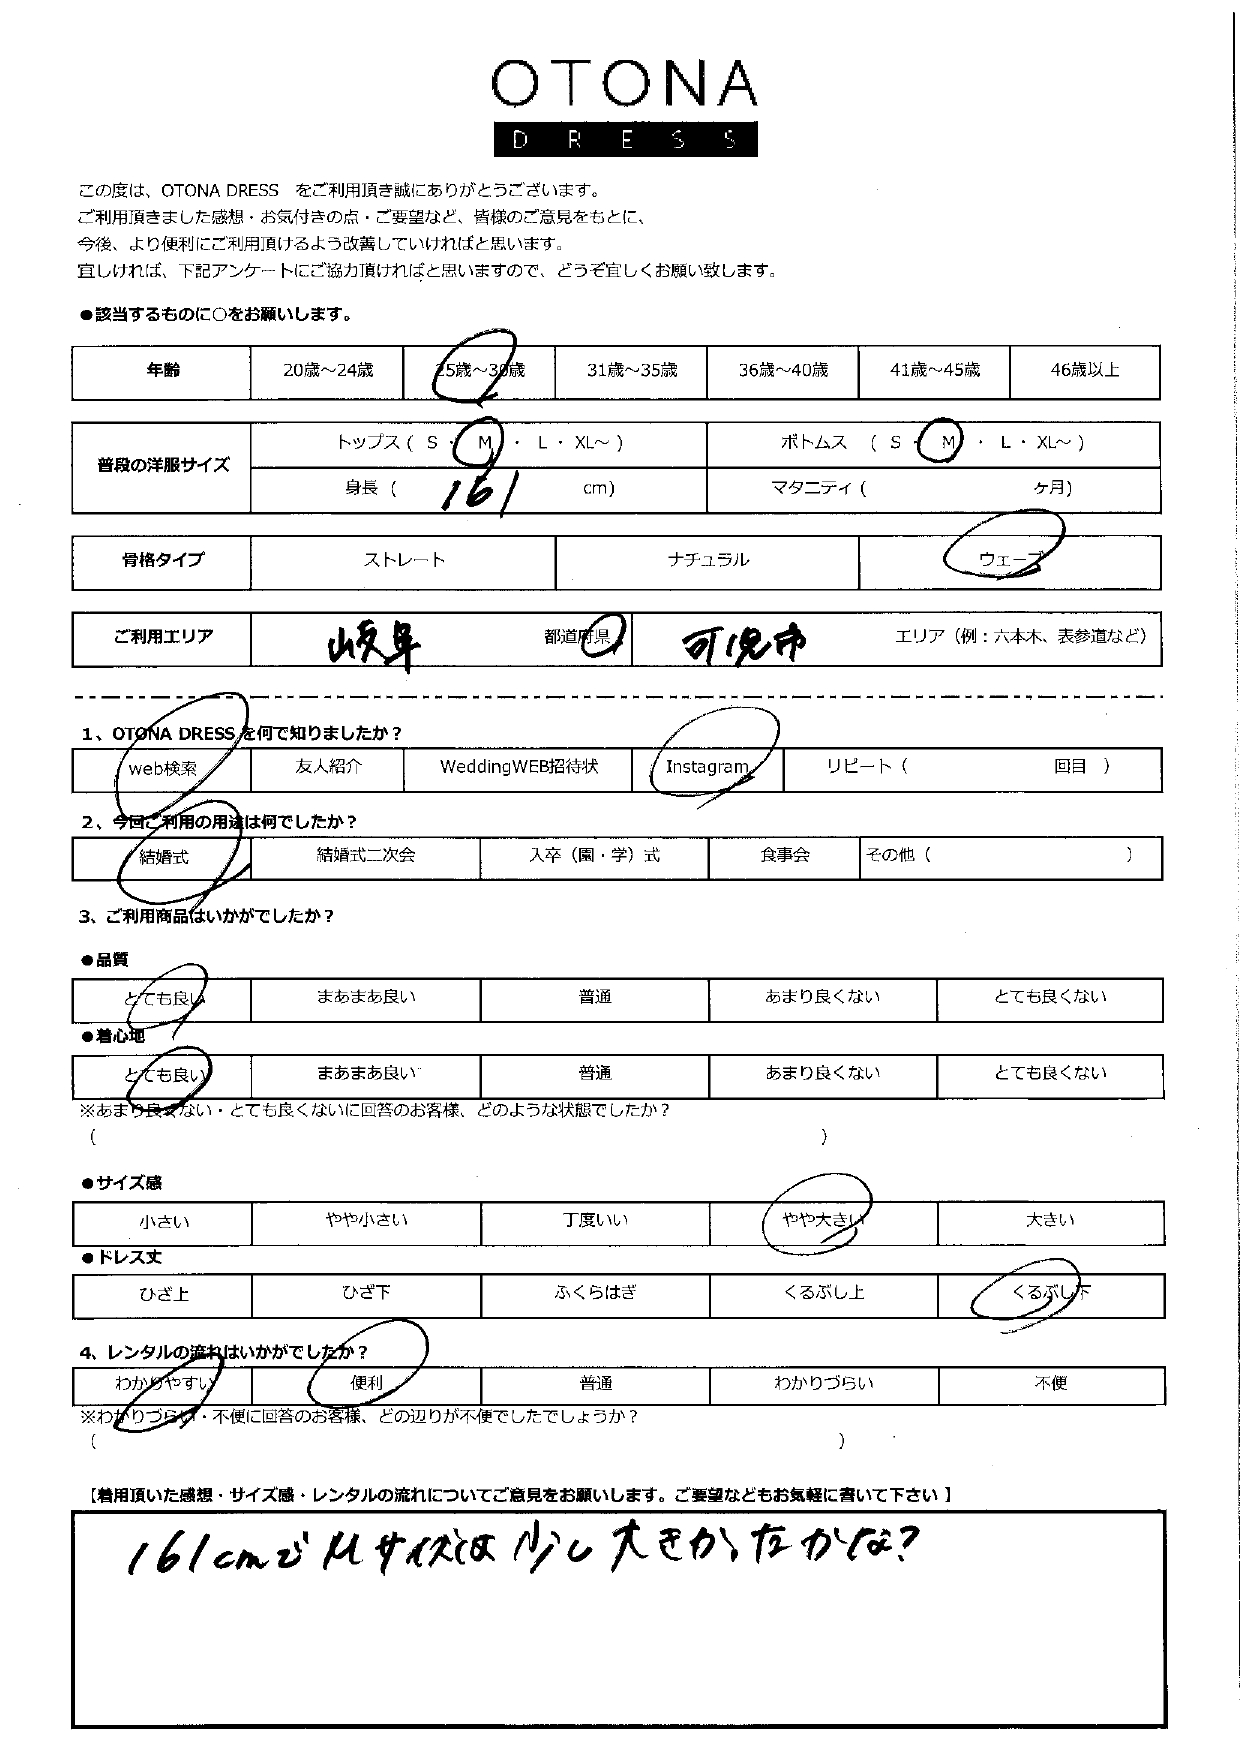 OTONA
DRESS
この度は、OTONA DRESS　をご利用頂き誠にありがとうございます。
ご利用頂きました感想・お気付きの点・ご要望など、皆様のご意見をもとに、
今後、より便利にご利用頂けるよう改善していければと思います。
宜しければ、下記アンケートにご協力頂ければと思いますので、どうぞ宜しくお願い致します。
●該当するものに○をお願いします。
年齢 20歳～24歳 25歳～30歳 31歳～35歳 36歳～40歳 41歳～45歳 46歳以上
普段の洋服サイズ トップス ( S ・ M ・ L ・ XL～ ) ボトムス ( S ・ M ・ L ・ XL～ )
身長 ( 161 cm) マタニティ ( ヶ月)
骨格タイプ ストレート ナチュラル ウェーブ
ご利用エリア 岐阜 都道府県 可児市 エリア（例：六本木、表参道など）
1、OTONA DRESSを何で知りましたか？
web検索 友人紹介 WeddingWEB招待状 Instagram リピート（ 回目 ）
2、今回ご利用の用途は何でしたか？
結婚式 結婚式二次会 入卒（園・学）式 食事会 その他（ ）
3、ご利用商品はいかがでしたか？
●品質
とても良い まあまあ良い 普通 あまり良くない とても良くない
●着心地
とても良い まあまあ良い 普通 あまり良くない とても良くない
※あまり良くない・とても良くないに回答のお客様、どのような状態でしたか？
( )
●サイズ感
小さい やや小さい 丁度いい やや大きい 大きい
●ドレス丈
ひざ上 ひざ下 ふくらはぎ くるぶし上 くるぶし下
4、レンタルの流れはいかがでしたか？
わかりやすい 便利 普通 わかりづらい 不便
※わかりづらい・不便に回答のお客様、どの辺りが不便でしたでしょうか？
( )
【着用頂いた感想・サイズ感・レンタルの流れについてご意見をお願いします。ご要望などもお気軽に書いて下さい】
161cmでMサイズは少し大きかったかな？